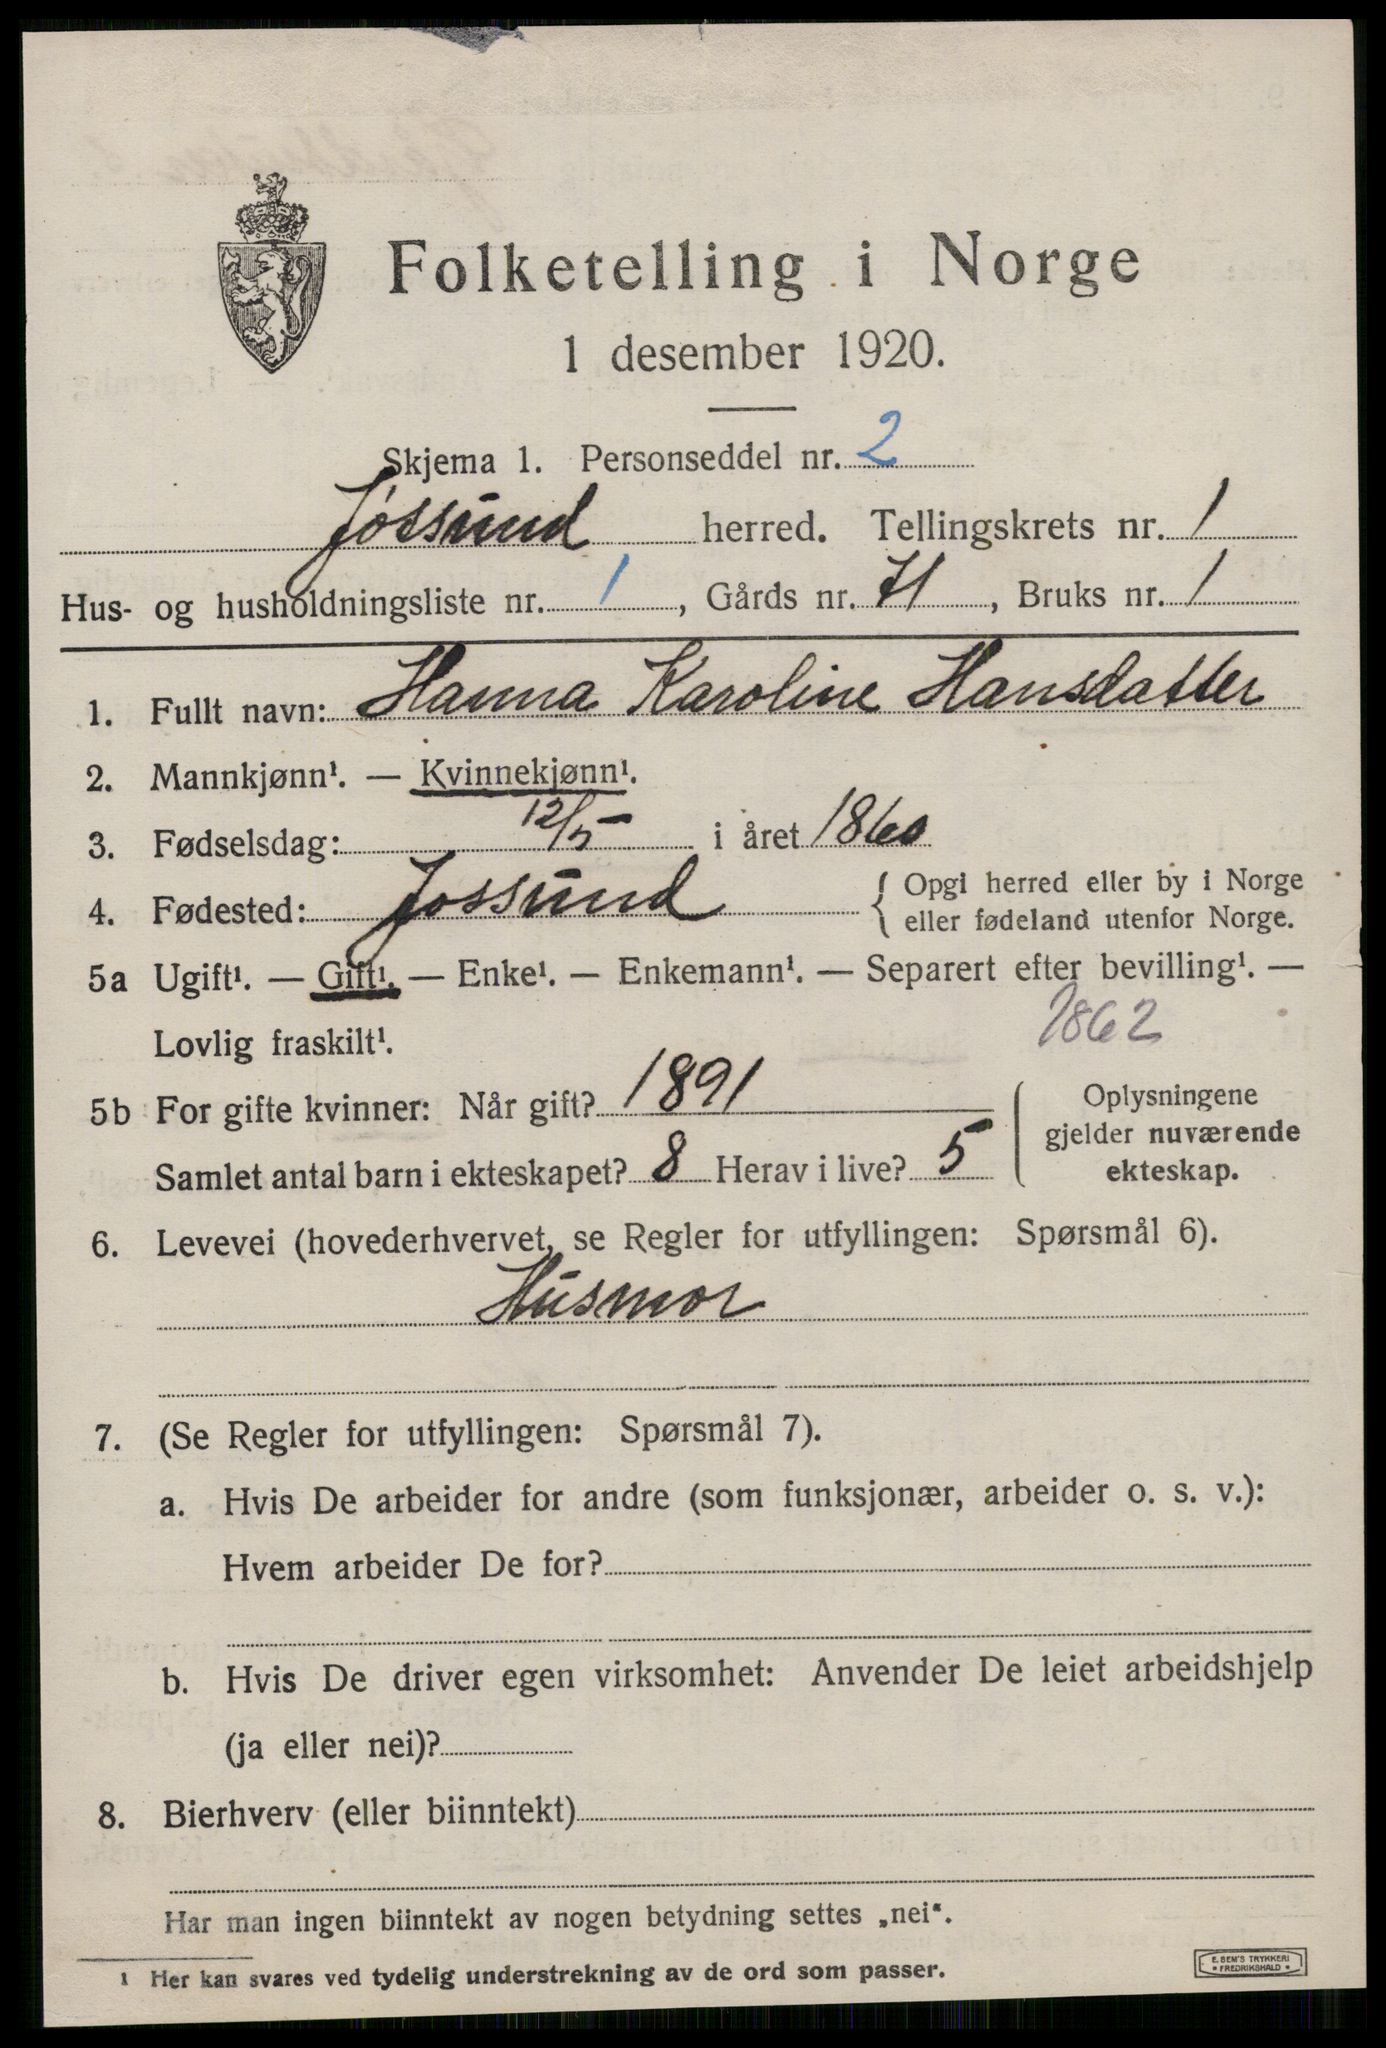 Folketelling i Norge
1 desember 1920.
Skjema 1. Personseddel nr. 2
Jøssund herred. Tellingskrets nr. 1
Hus- og husholdningsliste nr. 1, Gårds nr. 71, Bruks nr. 1
1. Fullt navn: Hanna Karoline Hansdatter
2. Mannkjønn¹. — Kvinnekjønn¹.
3. Fødselsdag: 12/5 i året 1860
4. Fødested: Jossund { Opgi herred eller by i Norge
eller fødeland utenfor Norge.
5a Ugift¹. — Gift¹. — Enke¹. — Enkemann¹. — Separert efter bevilling¹. —
Lovlig fraskilt¹. 1862
5b For gifte kvinner: Når gift? 1891
Samlet antal barn i ekteskapet? 8 Herav i live? 5
Oplysningene
gjelder nuværende
ekteskap.
6. Levevei (hovederhvervet, se Regler for utfyllingen: Spørsmål 6).
Husmor
7. (Se Regler for utfyllingen: Spørsmål 7).
a. Hvis De arbeider for andre (som funksjonær, arbeider o. s. v.):
Hvem arbeider De for?
b. Hvis De driver egen virksomhet: Anvender De leiet arbeidshjelp
(ja eller nei)?
8. Bierhverv (eller biinntekt)
Har man ingen biinntekt av nogen betydning settes „nei".
¹ Her kan svares ved tydelig understrekning av de ord som passer.
E. SEM'S TRYKKERI
• FREDRIKSHALD •